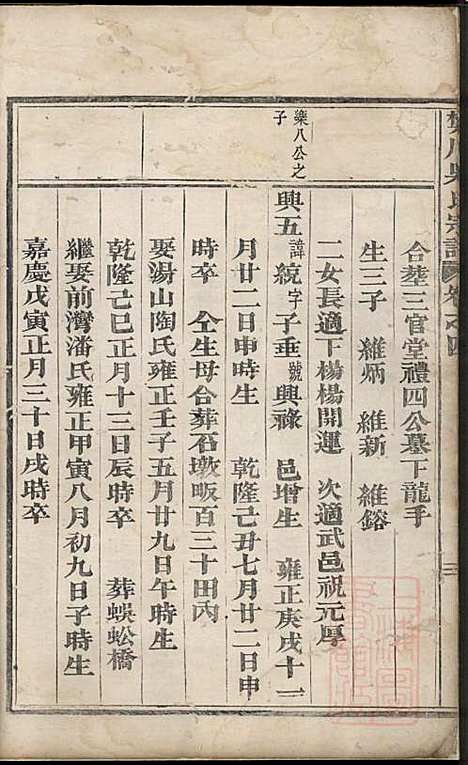 樊川吳氏宗譜 卷之四
三
合塟三官堂禮四公墓下龍手
生三子 維炳 維新 維鎔
二女長適下楊楊開運 次適武邑祝元厚
樂八公之子
興五 諱統 字子垂 號興祿 邑增生 雍正庚戌十一
月廿二日申時生 乾隆己丑七月廿二日申
時卒 仝生母合葬石墩畈百三十田內
娶湯山陶氏雍正壬子五月廿九日午時生
乾隆己巳正月十三日辰時卒 葬蜈蚣橋
繼娶前灣潘氏雍正甲寅八月初九日子時生
嘉慶戊寅正月三十日戌時卒